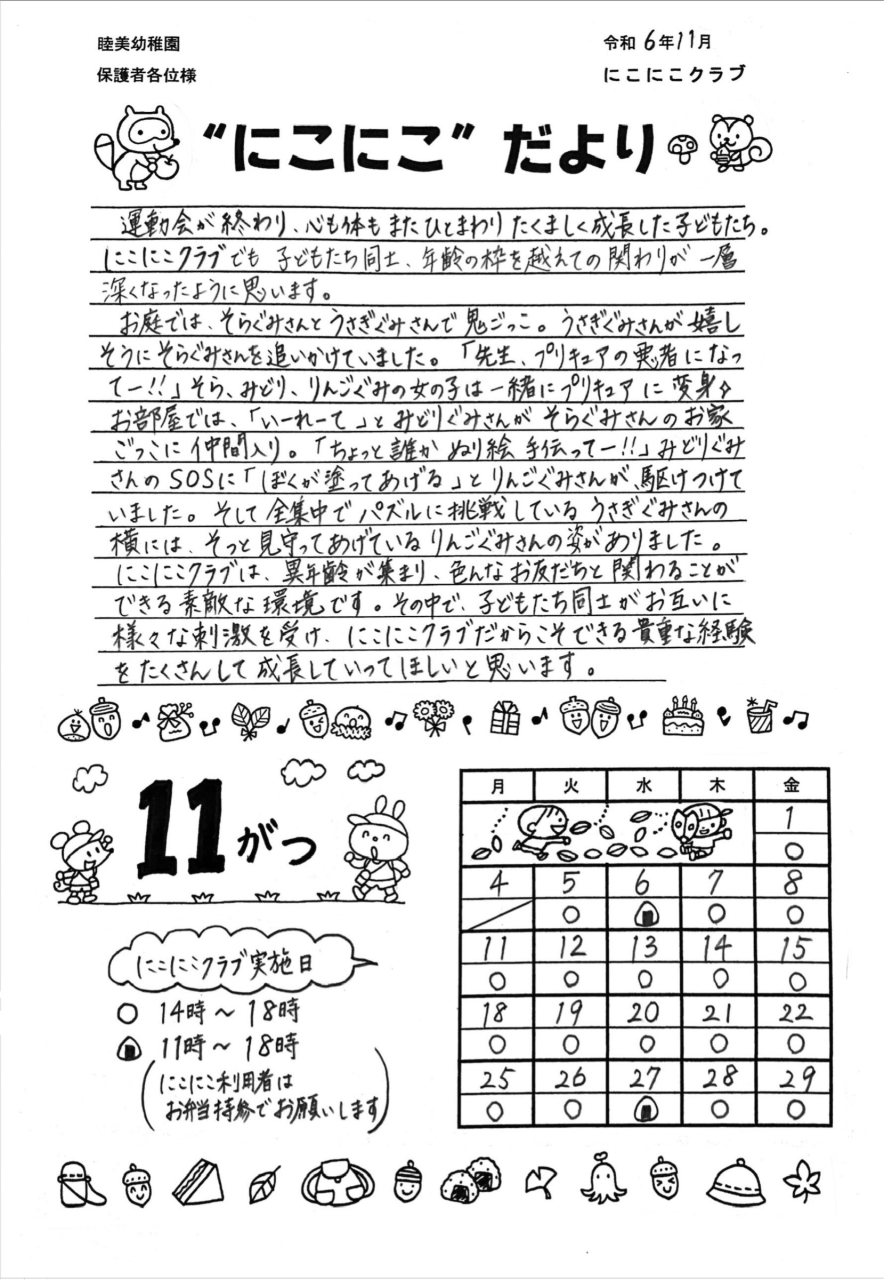 睦美幼稚園
令和6年11月
保護者各位様
にこにこクラブ
“にこにこ”だより
運動会が終わり、心も体もまたひとまわりたくましく成長した子どもたち。
にこにこクラブでも子どもたち同士、年齢の枠を越えての関わりが一層
深くなったように思います。
お庭では、そらぐみさんとうさぎぐみさんで鬼ごっこ。うさぎぐみさんが嬉し
そうにそらぐみさんを追いかけていました。「先生、プリキュアの悪者になっ
てー!!」そら、みどり、りんごぐみの女の子は一緒にプリキュアに変身✧
お部屋では、「いーれーて」とみどりぐみさんがそらぐみさんのお家
ごっこに仲間入り。「ちょっと誰かぬり絵手伝ってー!!」みどりぐみ
さんのSOSに「ぼくが塗ってあげる」とりんごぐみさんが、駆けつけて
いました。そして全集中でパズルに挑戦しているうさぎぐみさんの
横には、そっと見守ってあげているりんごぐみさんの姿がありました。
にこにこクラブは、異年齢が集まり、色んなお友だちと関わることが
できる素敵な環境です。その中で、子どもたち同士がお互いに
様々な刺激を受け、にこにこクラブだからこそできる貴重な経験
をたくさんして成長していってほしいと思います。
11がつ
にこにこクラブ実施日
○ 14時〜18時
🍙 11時〜18時
(にこにこ利用者は
お弁当持参でお願いします)
月 火 水 木 金
1
○
4 5 6 7 8
／ ○ 🍙 ○ ○
11 12 13 14 15
○ ○ ○ ○ ○
18 19 20 21 22
○ ○ ○ ○ ○
25 26 27 28 29
○ ○ 🍙 ○ ○